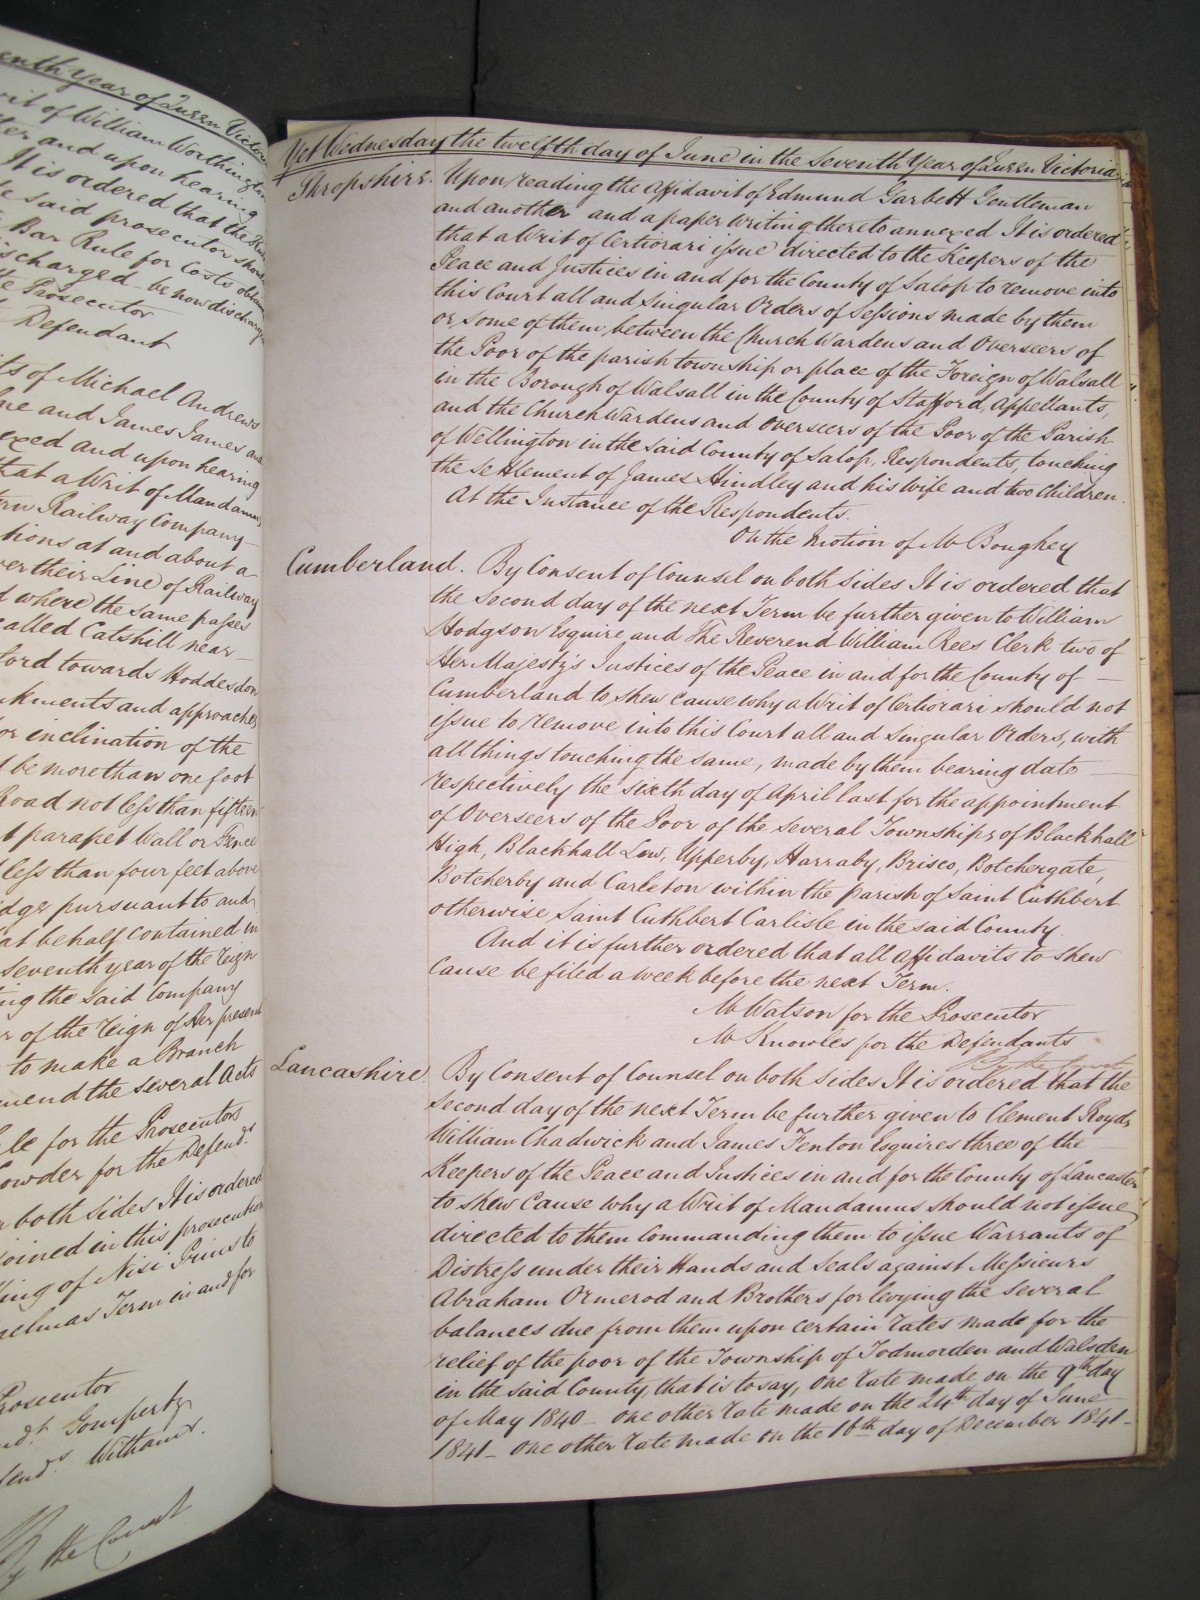 enth Year of Queen Victor
rit of William Worthington
ter and upon hearing
It is ordered that the Rule
le said prosecutor should
Bar Rule for Costs obtain
ischarged be now discharge
the Prosecutor
Defendant
ts of Michael Andrews
ne and James James and
exed and upon hearing
that a Writ of Mandamus
ern Railway Company
tions at and about a
ver their Line of Railway
d where the same passes
called Catshill near
ford towards Hoddesdon
nkments and approaches
or inclination of the
d be more than one foot
Road not less than fifteen
t parapet Wall or Fence
less than four feet above
idge pursuant to and
at behalf contained in
Seventh year of the reign
ing the said Company
r of the reign of Her present
to make a Branch
mend the several Acts
le for the Prosecutors
owder for the Defend.ts
n both sides It is ordered
joined in this prosecution
ting of Nisi Prius to
aelmas Term in and for
Prosecutor
nd.t Gompertz
fend.s Witham.
By the Court
Yet Wednesday the twelfth day of June in the Seventh Year of Queen Victoria
Shropshire. Upon reading the Affidavit of Edmund Garbett Gentleman
and another and a paper writing thereto annexed It is ordered
that a Writ of Certiorari issue directed to the Keepers of the
Peace and Justices in and for the County of Salop to remove into
this Court all and singular Orders of Sessions made by them
or some of them, between the Church Wardens and Overseers of
the Poor of the parish township or place of the Foreign of Walsall
in the Borough of Walsall in the County of Stafford, Appellants,
and the Church Wardens and Overseers of the Poor of the Parish
of Wellington in the said County of Salop, Respondents, touching
the settlement of James Hindley and his Wife and two Children.
At the Instance of the Respondents.
On the motion of Mr Boughey
Cumberland. By Consent of Counsel on both sides It is ordered that
the second day of the next Term be further given to William
Hodgson Esquire and The Reverend William Rees Clerk two of
Her Majesty's Justices of the Peace in and for the County of
Cumberland to shew cause why a Writ of Certiorari should not
issue to remove into this Court all and singular Orders, with
all things touching the same, made by them bearing date
respectively the sixth day of April last for the appointment
of Overseers of the Poor of the several Townships of Blackhall
High, Blackhall Low, Upperby, Harraby, Brisco, Botchergate,
Botcherby and Carleton within the parish of Saint Cuthbert
otherwise Saint Cuthbert Carlisle in the said County.
And it is further ordered that all affidavits to shew
Cause be filed a week before the next Term.
Mr Watson for the Prosecutor
Mr Knowles for the Defendants
By the Court
Lancashire By Consent of Counsel on both sides It is ordered that the
second day of the next Term be further given to Clement Royds
William Chadwick and James Fenton Esquires three of the
Keepers of the Peace and Justices in and for the County of Lancaster
to shew Cause why a Writ of Mandamus should not issue
directed to them Commanding them to issue Warrants of
Distress under their Hands and Seals against Messieurs
Abraham Ormerod and Brothers for levying the several
balances due from them upon certain rates made for the
relief of the poor of the Township of Todmorden and Walsden
in the said County, that is to say, One rate made on the 9th day
of May 1840 – one other rate made on the 24th day of June
1841 – one other rate made on the 16th day of December 1841 –